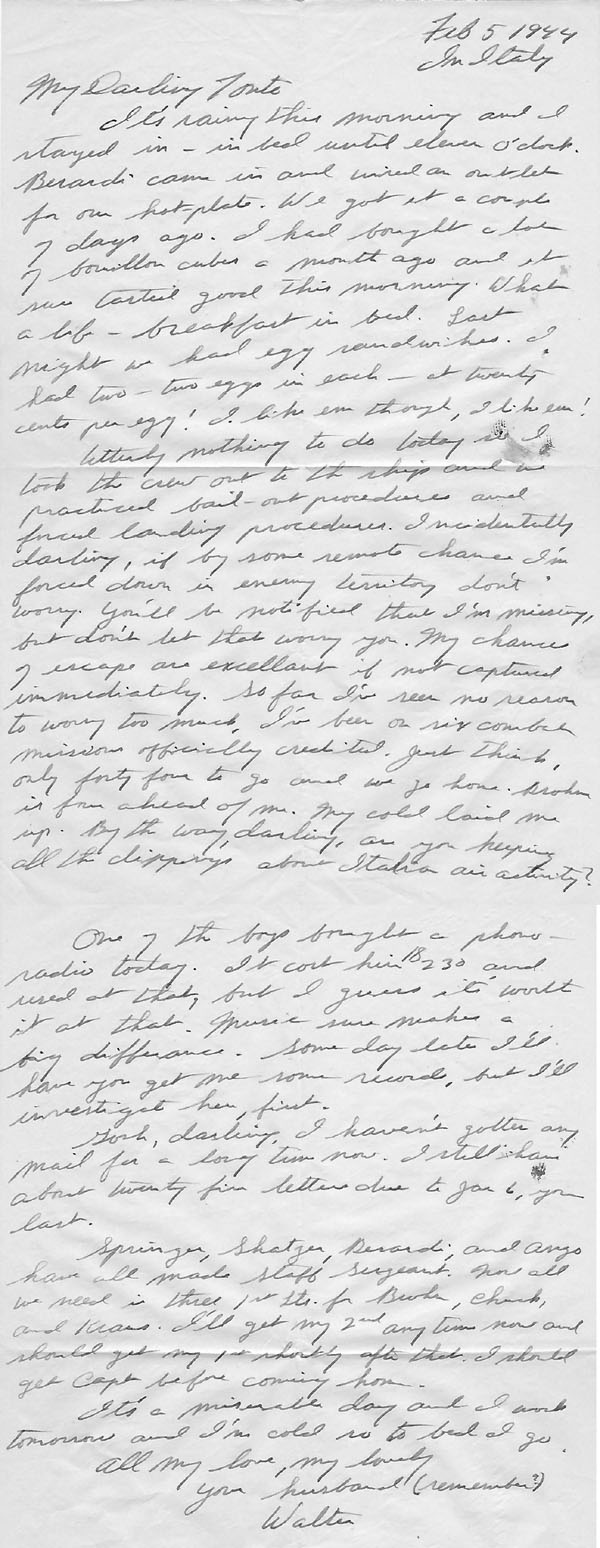 Feb 5 1944
In Italy
My Darling
It's rainy this morning and I
stayed in – in bed until eleven o'clock.
Berardi came in and wired an outlet
for our hotplate. We got it a couple
of days ago. I had bought a lot
of bouillon cubes a month ago and it
sure tasted good this morning. What
a life – breakfast in bed. Last
night we had egg sandwiches. I
had two – two eggs in each – at twenty
cents per egg! I like em though, I like em!
Utterly nothing to do today so I
took the crew out to the ships and we
practiced bail-out procedures and
forced landing procedures. Incidentally
darling, if by some remote chance I'm
forced down in enemy territory don't
worry. You'll be notified that I'm missing,
but don't let that worry you. My chances
of escape are excellent if not captured
immediately. So far I've seen no reason
to worry too much, I've been on six combat
missions officially credited. Just think,
only forty four to go and we go home.
is four ahead of me. My cold laid me
up. By the way, darling, are you keeping
all the clippings about Italian air activity?
One of the boys bought a phono-
radio today. It cost him 230 and
used at that, but I guess it's worth
it at that. Music sure makes a
big differance. Some day later I'll
have you get me some records, but I'll
investigate here, first.
Gosh, darling, I haven't gotten any
mail for a long time now. I still have
about twenty five letters due to Jan 6, your
last.
Springer, Shatzer, Berardi, and
have all made Staff Sergeant. Now all
we need is three 1st Lts. for Chuck,
and Kraus. I'll get my 2nd any time now and
should get my 1st shortly after that. I should
get Capt before coming home.
It's a miserable day and I work
tomorrow and I'm cold so to bed I go.
All my love, my lovely
your husband (remember?)
Walter